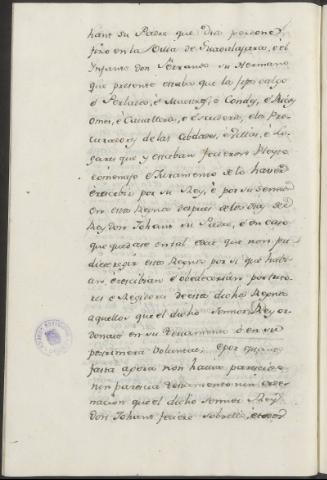 hant su Padre que Dios perdone
fizo en la Villa de Guadalajara, é el
Infante don Ferrando su Hermano
que presente estaba que la fijos dalgo
é Perlados, é Maestres, é Condes, é Ricos
Omes, é Cavalleros, é Escuderos, é los Pro-
curadores de las Cibdades, é Villas, é Lo-
gares que y estaban ficieron Pleyto
é omenaje é Juramento de lo haver
é rescebir por su Rey, é por su Sennor
en estos Regnos despues de los dias del
Rey don Johan su Padre, é en caso
que quedase en tal edat que non pu-
diese regir estos Regnos por si que habi-
an, é rescibirian é obedecerian por tuto-
res é Regidores de estos dichos Regnos
aquellos que el dicho Sennor Rey or-
denase en su Testamento ó en su
postrimera voluntad; é por
fasta agora non havia parescido
nin parescia Testamento nin orde-
nacion que el dicho Sennor Rey
don Johan ficiere sobre